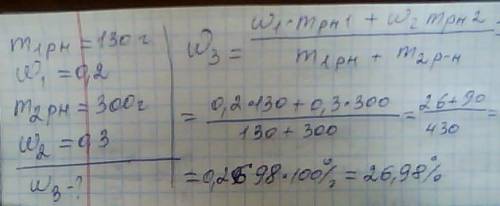 m₁рн = 130 г
W₁ = 0,2
m₂рн = 300 г
W₂ = 0,3
W₃ - ?
W₃ = (W₁·mрн1 + W₂ mрн2) / (m₁рн + m₂р-н) =
= (0,2·130 + 0,3·300) / (130 + 300) = (26+90) / 430 =
= 0,2698·100% = 26,98%